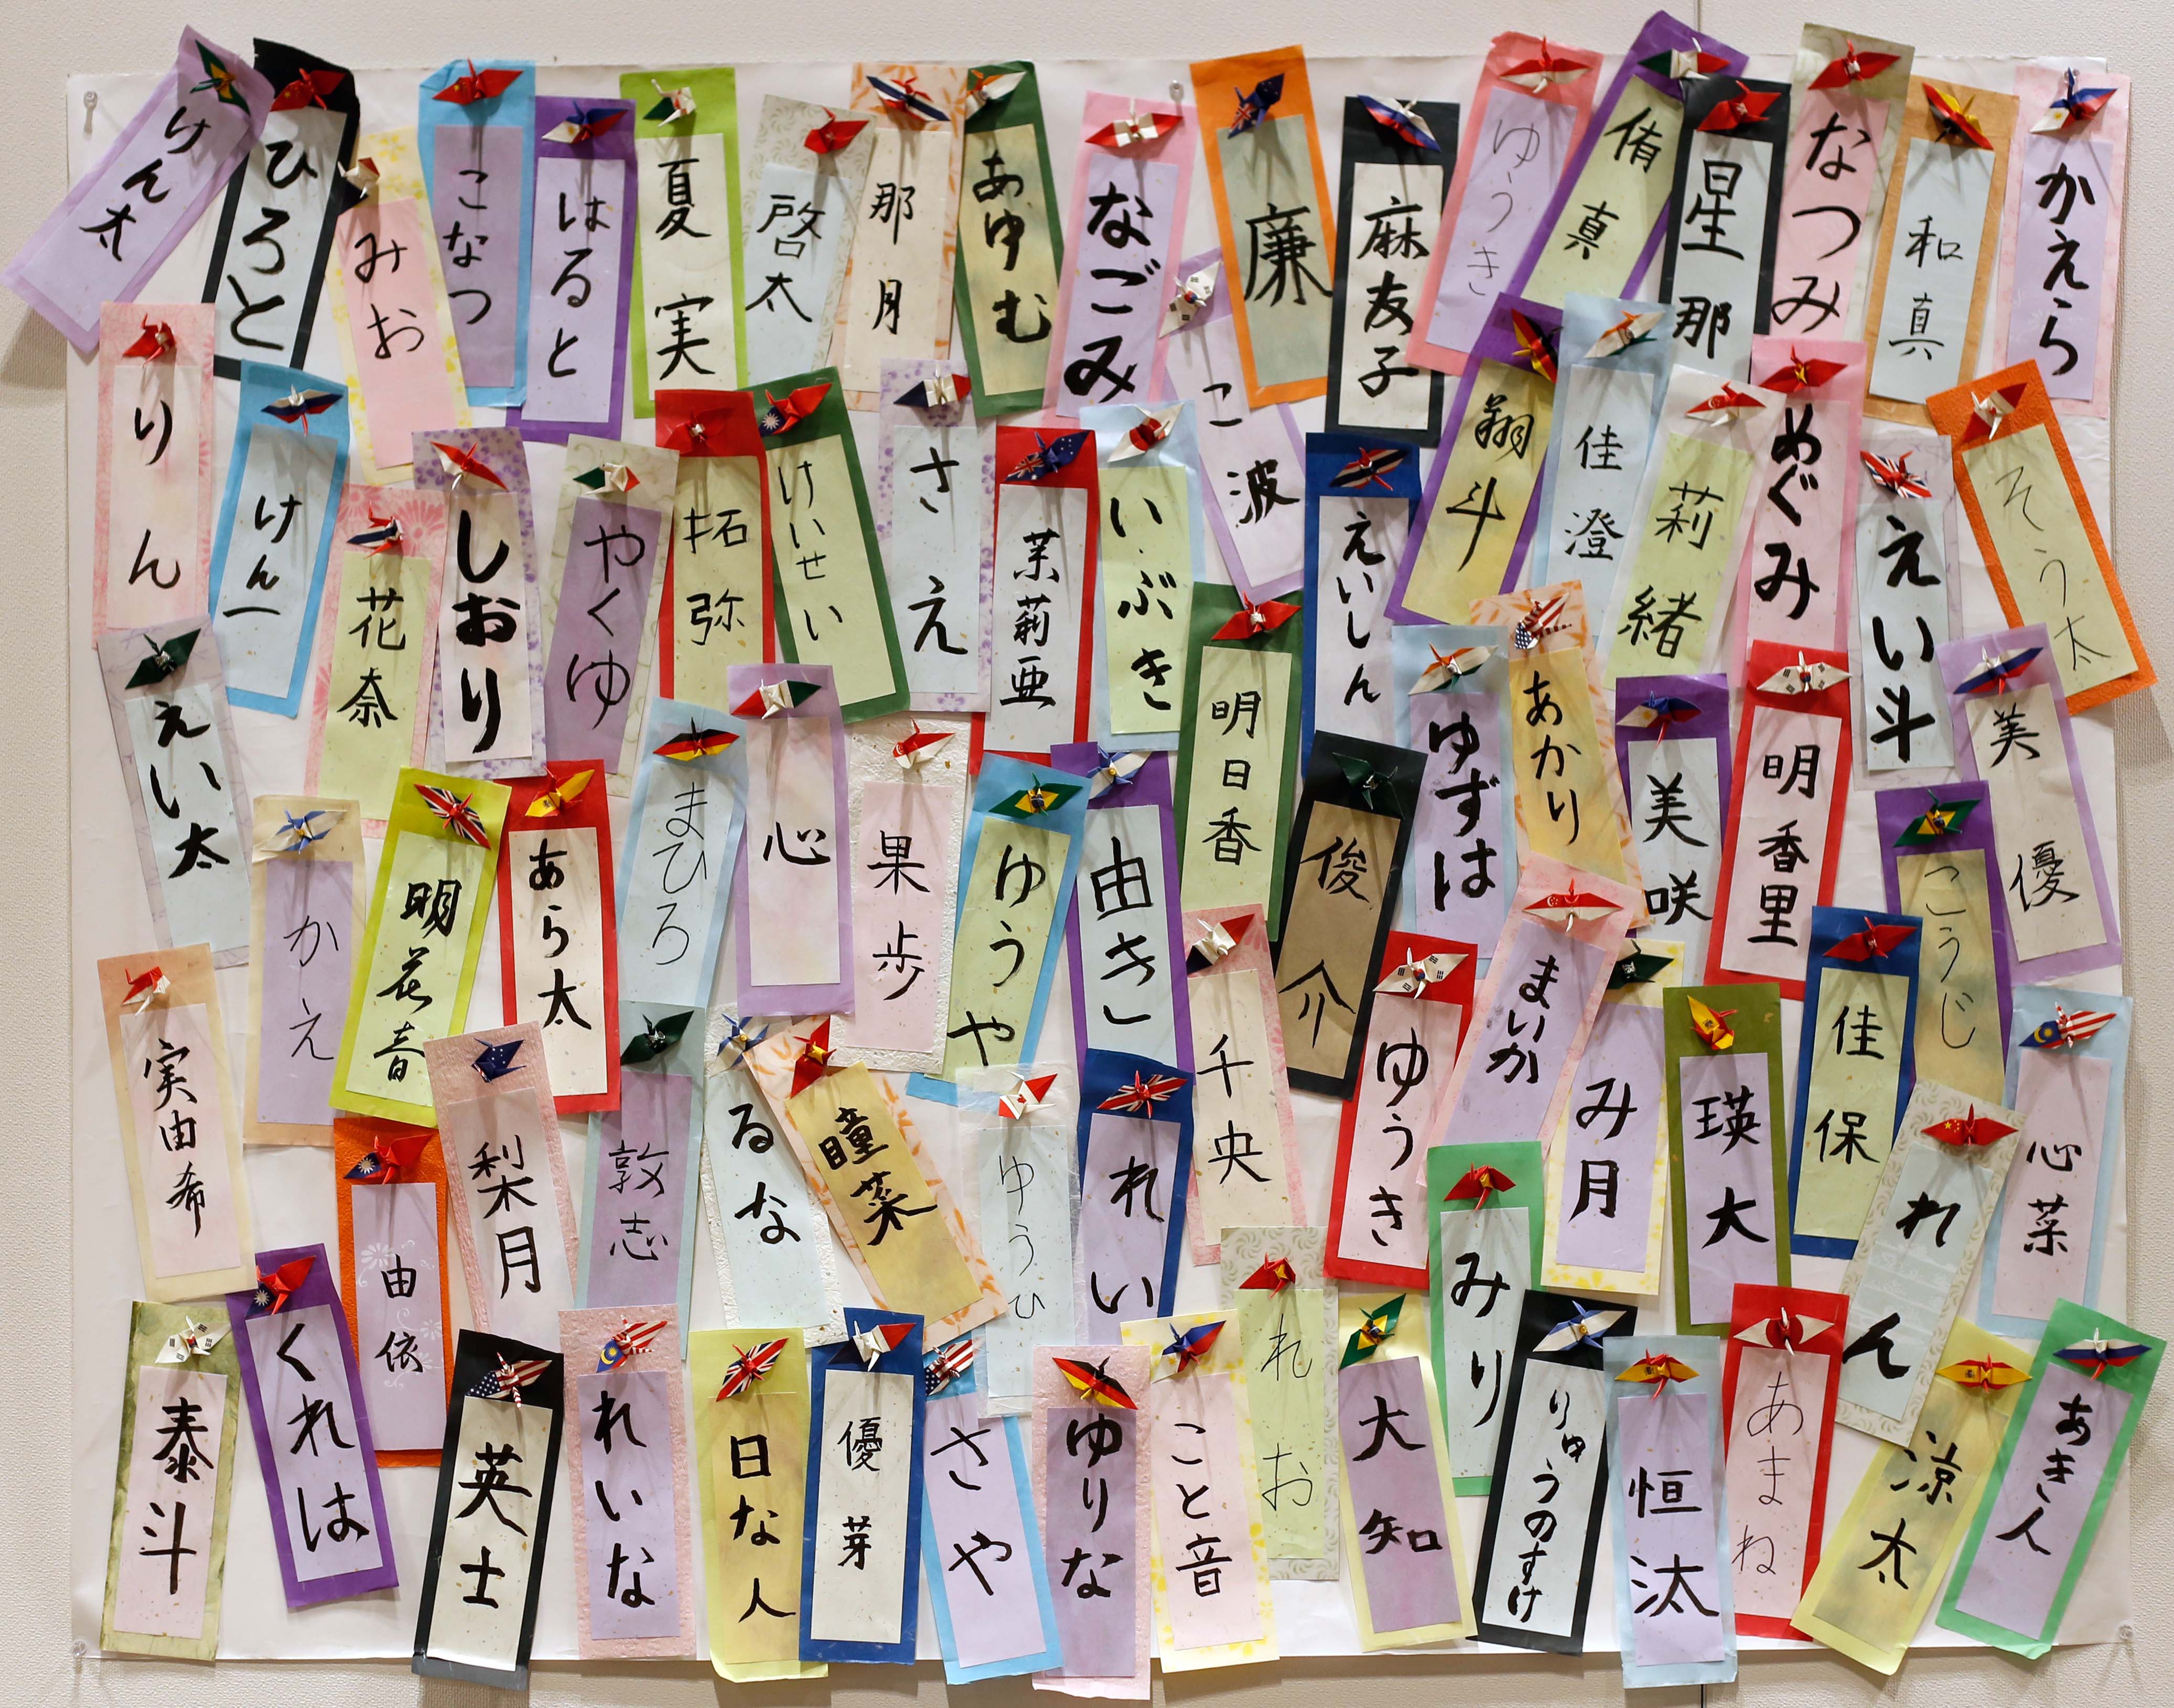 けん太
ひろと
みお
こなつ
はると
夏実
啓太
那月
あゆむ
なごみ
こ波
廉
麻友子
ゆうき
侑真
星那
なつみ
和真
かえら
りん
けん一
花奈
しおり
やくゆ
拓弥
けいせい
さえ
茉莉亜
いぶき
明日香
えいしん
翔斗
佳澄
莉緒
めぐみ
えい斗
そう太
えい太
かえ
明花音
あら太
まひろ
心
果歩
ゆうや
由き
俊介
ゆずは
あかり
美咲
明香里
こうじ
美優
実由希
由依
梨月
敦志
るな
瞳菜
ゆうひ
れい
千央
ゆうき
まいか
み月
瑛大
佳保
れん
心菜
泰斗
くれは
英士
れいな
日な人
優芽
さや
ゆりな
こと音
れお
大知
みり
りゅうのすけ
恒汰
あまね
涼太
あき人